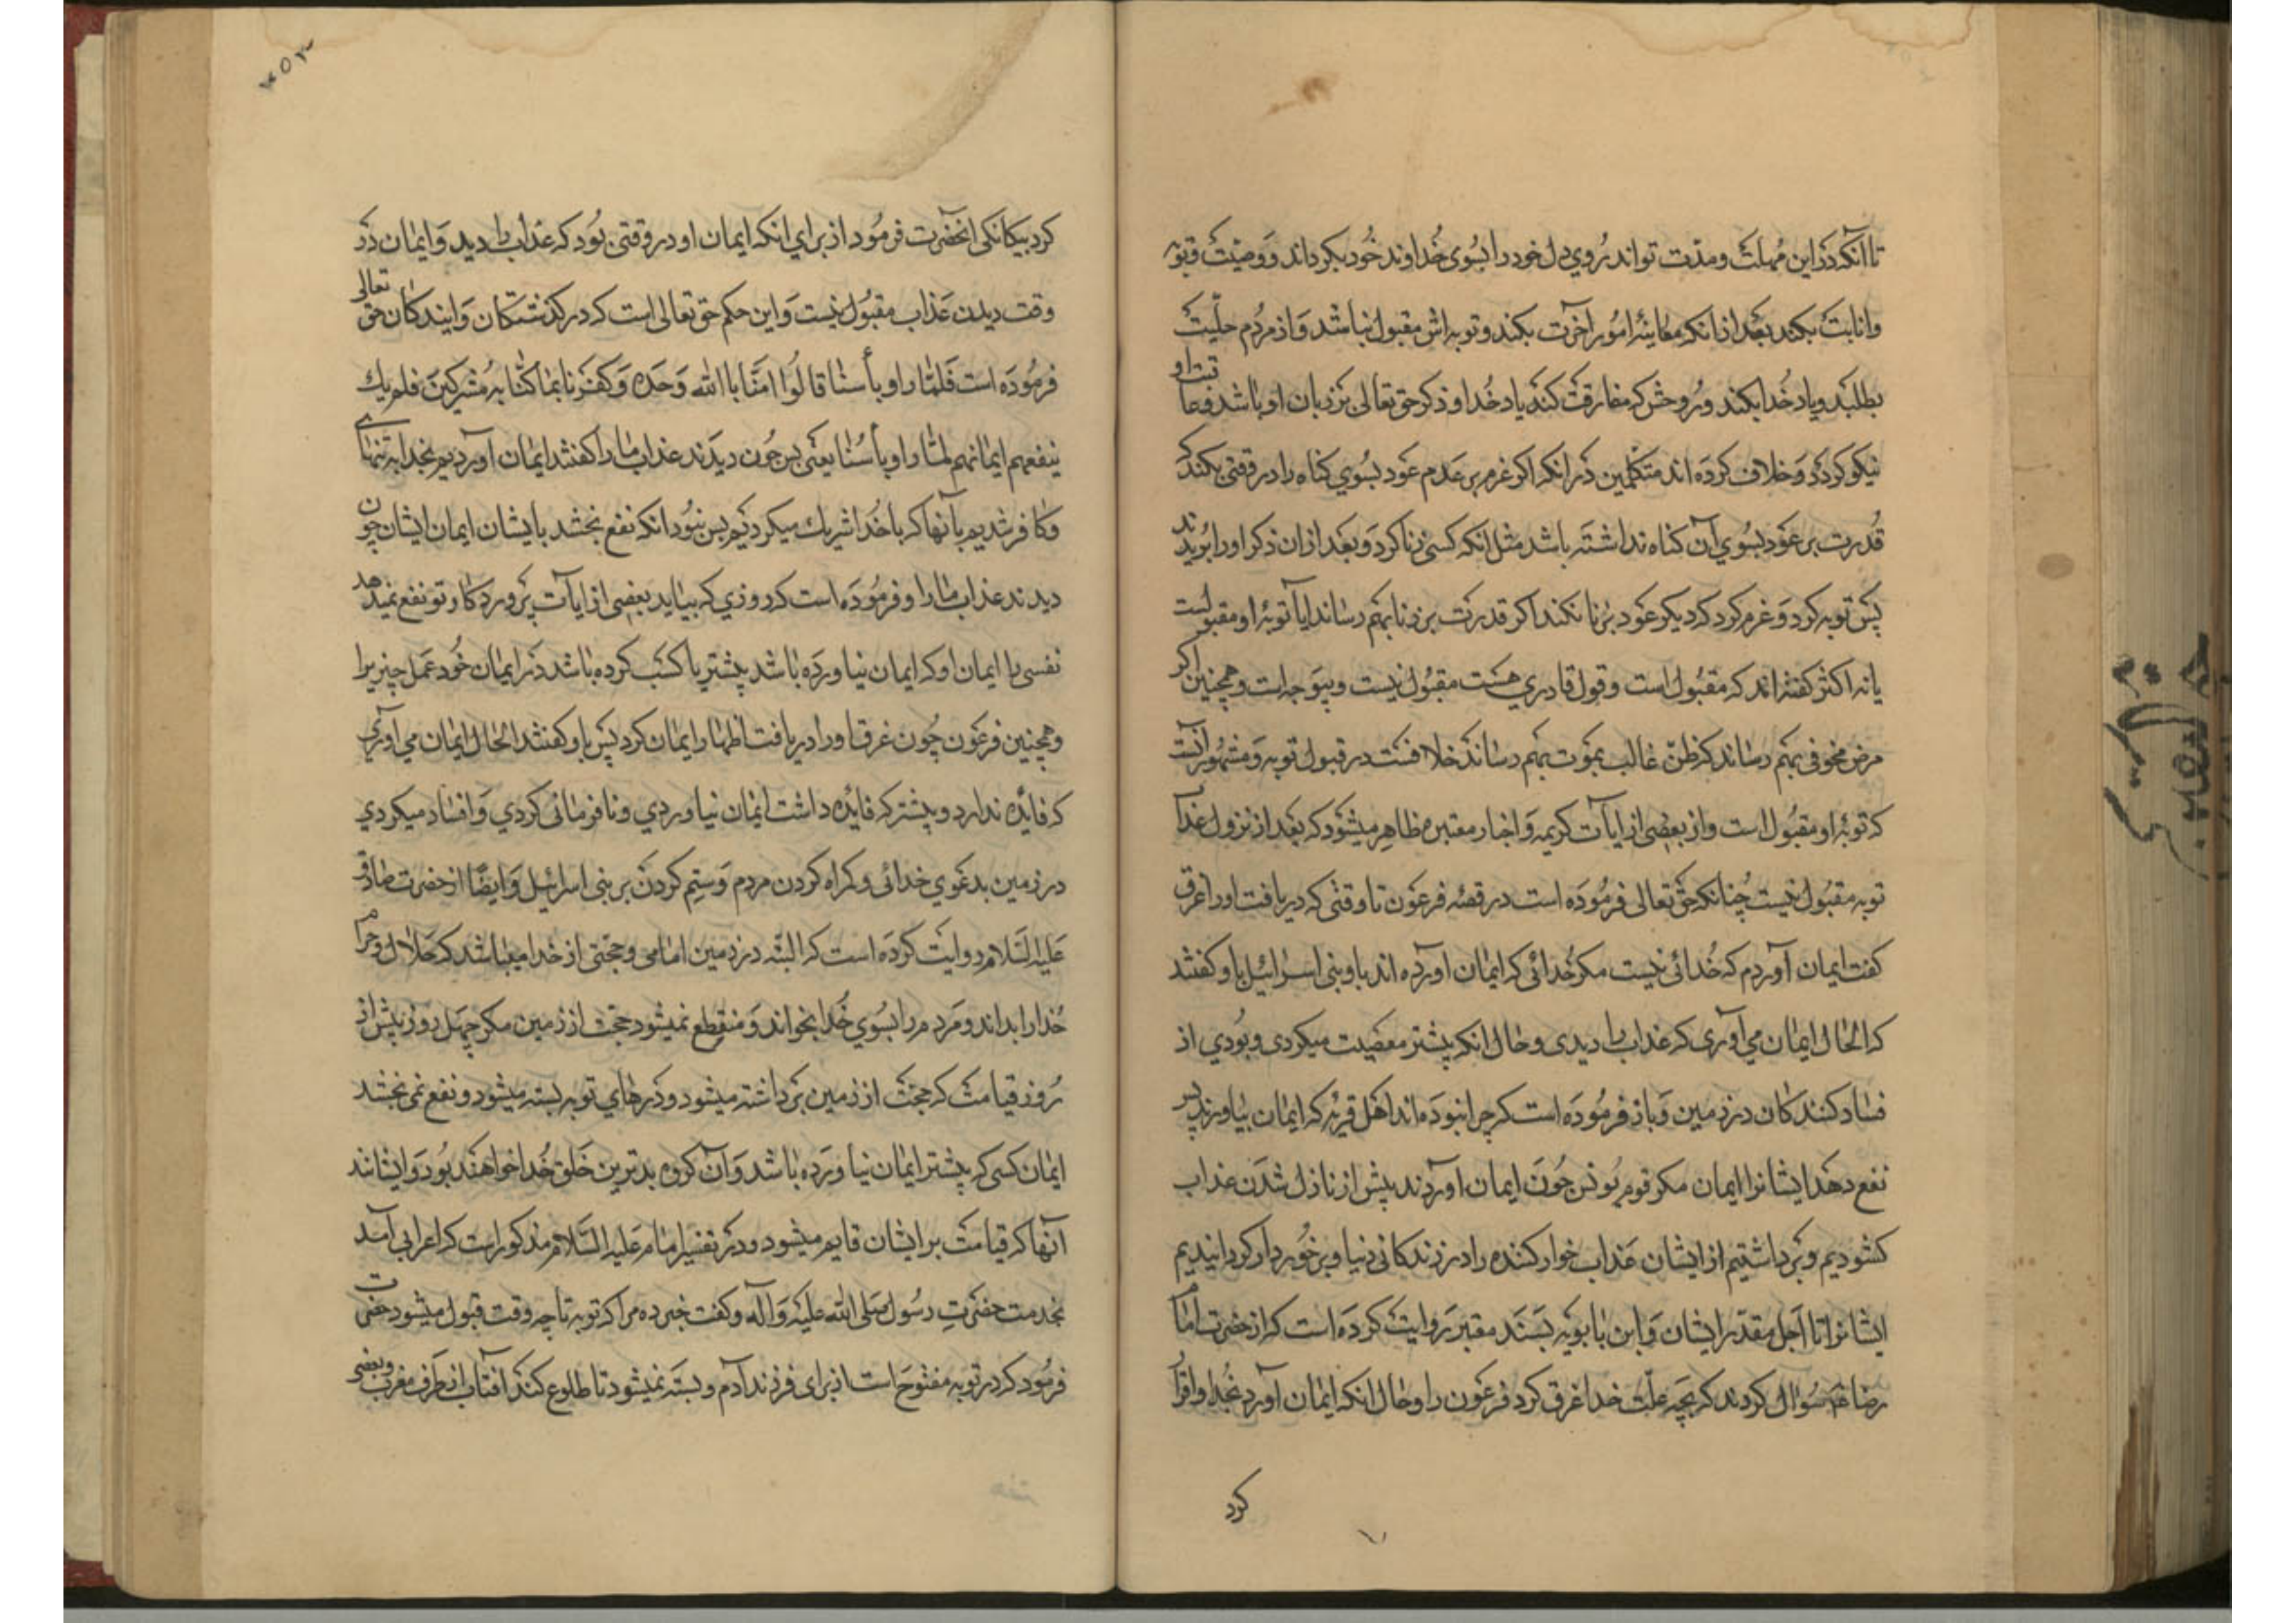 تا آنکه در این مهلت و مدت تواند روي دل خود را بسوی خداوند خود بکرداند و وصیت و توبه
و انابت بکند بعد از انکه معاینهٔ امور اخرت بکند و توبه اش مقبول نباشد و از مردم حلّیت
بطلبد و یاد خدا بکند و روحش که مفارقت کند یاد خدا و ذکر حق تعالی بر زبان او باشد و عاقبت او
نیکو کردد و خلاف کرده اند متکلمین در انکه اکر عزم بر عدم عود بسوي کناه را در وقتی بکند که
قدرت بر عود بسوي آن کناه نداشته باشد مثل انکه کسی زنا کرد و بعد از ان ذکر او را بریدند
پس توبه کرد و عزم کرد که دیکر عود بزنا نکند اکر قدرت بر زنا بهم رساند ایا توبهٔ او مقبولست
یا نه اکثر کفته اند که مقبول است و قول قادري هست مقبول نیست و بیوجه است و همچنین اکر
مرض مخوفی بهم رساند که ظن غالب بموت بهم رساند خلافست در قبول توبه و مشهور آنست
که توبهٔ او مقبول است و از بعضی از ایات کریمه و اخبار معتبره ظاهر میشود که بعد از نزول عذاب
توبه مقبول نیست چنانکه حق تعالی فرموده است در قصّه فرعون تا وقتی که دریافت او را غرق
کفت ایمان آوردم که خدائی نیست مکر خدائی که ایمان اورده اند باو بنی اسرائیل باو کفتند
که الحال ایمان می آوری که عذاب را دیدی و حال انکه پیشتر معصیت میکردی و بودي از
فساد کنندکان در زمین و باز فرموده است که چرا نبوده اند اهل قریهٔ که ایمان بیاورند پس
نفع دهد ایشانرا ایمان مکر قوم یونس چون ایمان اوردند پیش از نازل شدن عذاب
کشودیم و برداشتیم از ایشان عذاب خوار کننده را در زندکانی دنیا و برخوردار کردانیدیم
ایشانرا تا اجل مقدّر ایشان و ابن بابویه بسند معتبر روایت کرده است که از حضرت امام
رضا ع سؤال کردند که بچه علّت خدا غرق کرد فرعون را و حال انکه ایمان آورد بخدا و اقرار
کرد
۳۵۲
کرد بیکانکی انحضرت فرمود از براي انکه ایمان او در وقتی بود که عذاب را دید و ایمان در
وقت دیدن عذاب مقبول نیست و این حکم حق تعالی است که در کذشتکان و ایندکان حق تعالی
فرموده است فلمّا راو بأسنا قالوا امنّا باالله وحده و کفرنا بما کنّا به مشرکین فلم یك
ینفعهم ایمانهم لمّا راو بأسنا یعنی پس چون دیدند عذاب ما را کفتند ایمان آوردیم بخدا به تنهائي
و کافر شدیم بآنها که با خدا شریك میکردیم پس نبود انکه نفع بخشد بایشان ایمان ایشان چون
دیدند عذاب ما را و فرموده است که روزي که بیاید بعضی از ایات پروردکار تو نفع نمیدهد
نفسی را ایمان او که ایمان نیاورده باشد پیشتر یا کسب کرده باشد در ایمان خود عمل چیز یرا
و همچنین فرعون چون غرق او را دریافت اظهار ایمان کرد پس باو کفتند الحال ایمان می آوری
که فایده ندارد و پیشتر که فایده داشت ایمان نیاوردي و نافرمانی کردي و افساد میکردي
در زمین بدعوي خدائی و کمراه کردن مردم و ستم کردن بر بنی اسرائیل و ایضًا از حضرت صادق
علیه السّلام روایت کرده است که البتّه در زمین امامی و حجّتی از خدا میباشد که حلال و حرام
خدا را بداند و مردم را بسوي خدا بخواند و منقطع نمیشود حجت از زمین مکر چهل روز پیش از
روز قیامت که حجت از زمین برداشته میشود و درهاي توبه بسته میشود و نفع نمی بخشد
ایمان کسی که پیشتر ایمان نیاورده باشد و آن کروه بدترین خلق خدا خواهند بود و ایشانند
آنها که قیامت بر ایشان قایم میشود و در تفسیر امام علیه السّلام مذکور است که اعرابی آمد
بخدمت حضرت رسول صلی الله علیه و آله و کفت خبر ده مرا که توبه تا چه وقت قبول میشود حضرت
فرمود که در توبه مفتوح است از برای فرزند آدم و بسته نمیشود تا طلوع کند آفتاب از طرف مغرب و بعضی